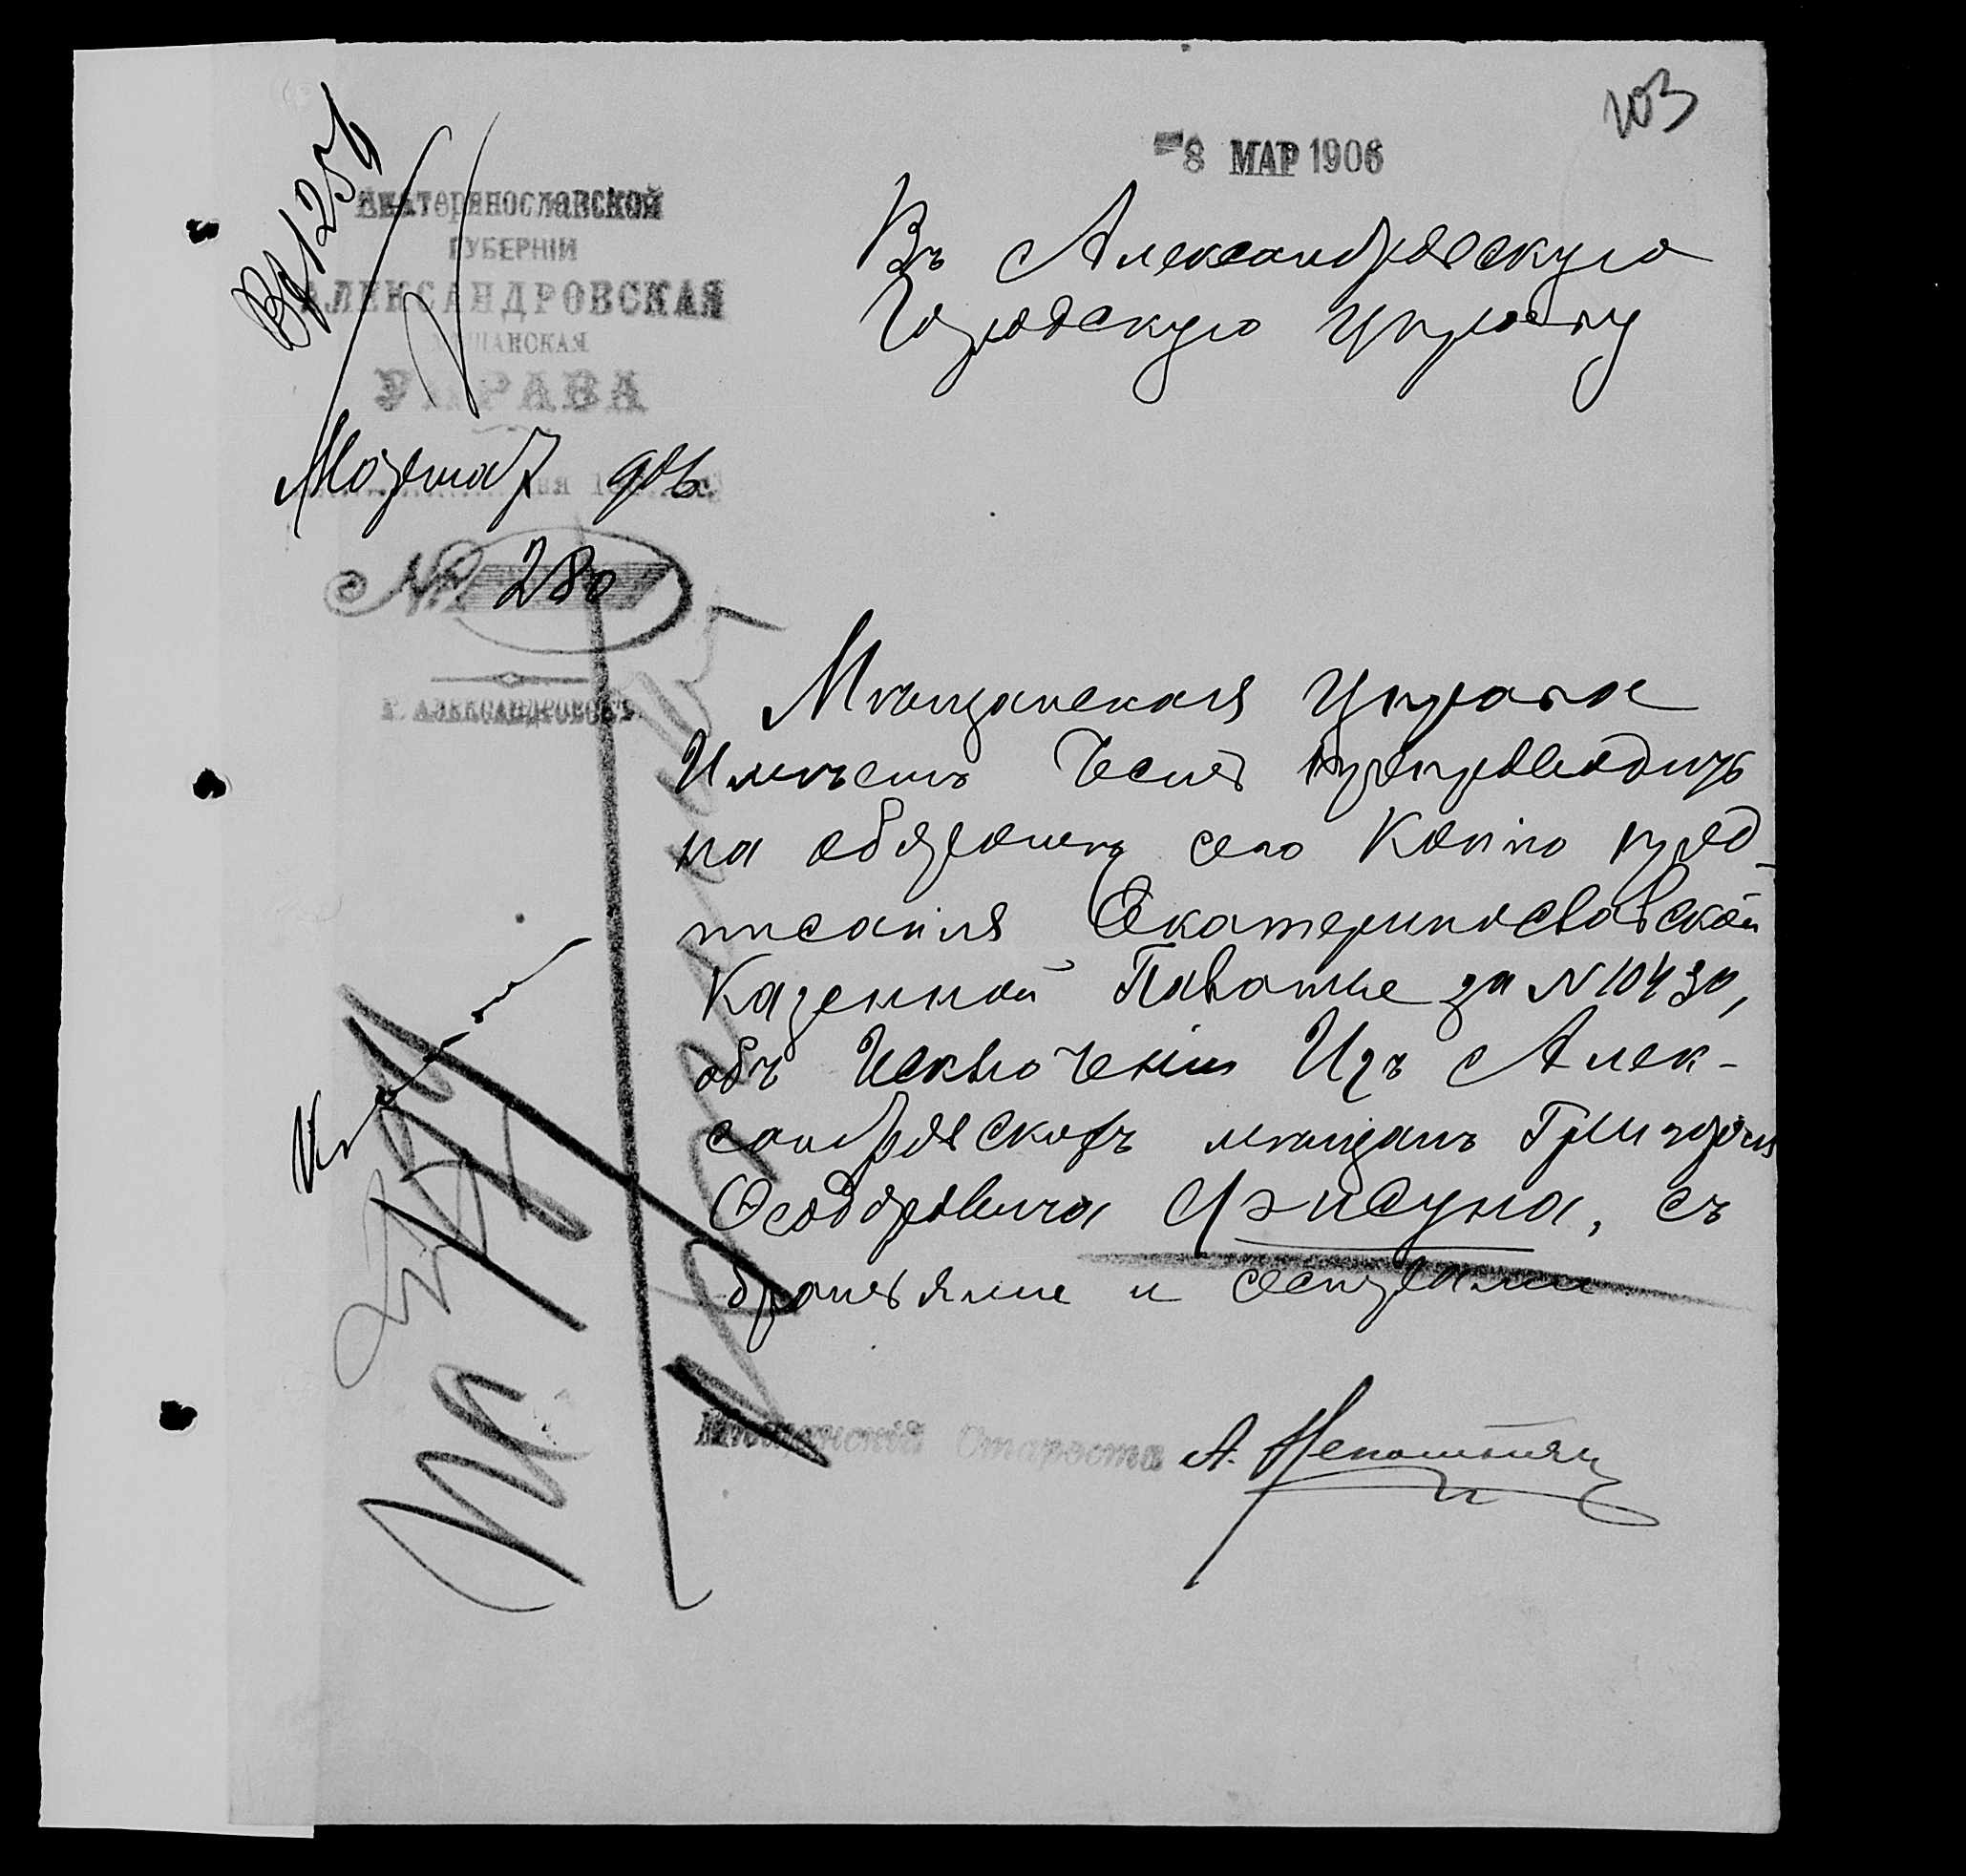 103
8 МАР 1906
Екатеринославской
ГУБЕРНІИ
АЛЕКСАНДРОВСКАЯ
МѢЩАНСКАЯ
УПРАВА
Марта 7 906
№ 280
Г. АЛЕКСАНДРОВСКЪ
Въ Александровскую
Городскую Управу
Мѣщанская Управа
Имѣетъ Честь препроводить
на обороте сего Копію пред-
писанія Екатеринославской
Казенной Палаты за N 10430,
объ Исключеніи Изъ Алек-
сандровскихъ мѣщанъ Григорія
Феодоровича Фисуна, съ
братьями и сестрами
Мѣщанскій Староста А.